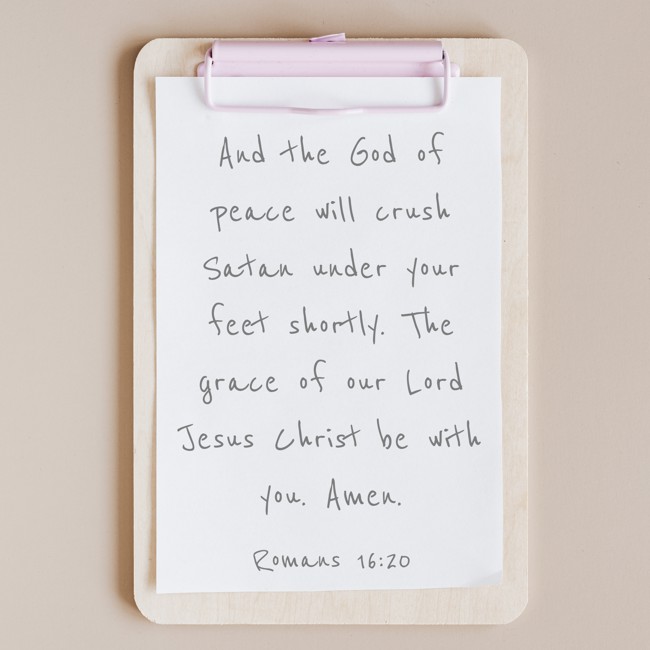 And the God of
peace will crush
Satan under your
feet shortly. The
grace of our Lord
Jesus Christ be with
you. Amen.
Romans 16:20